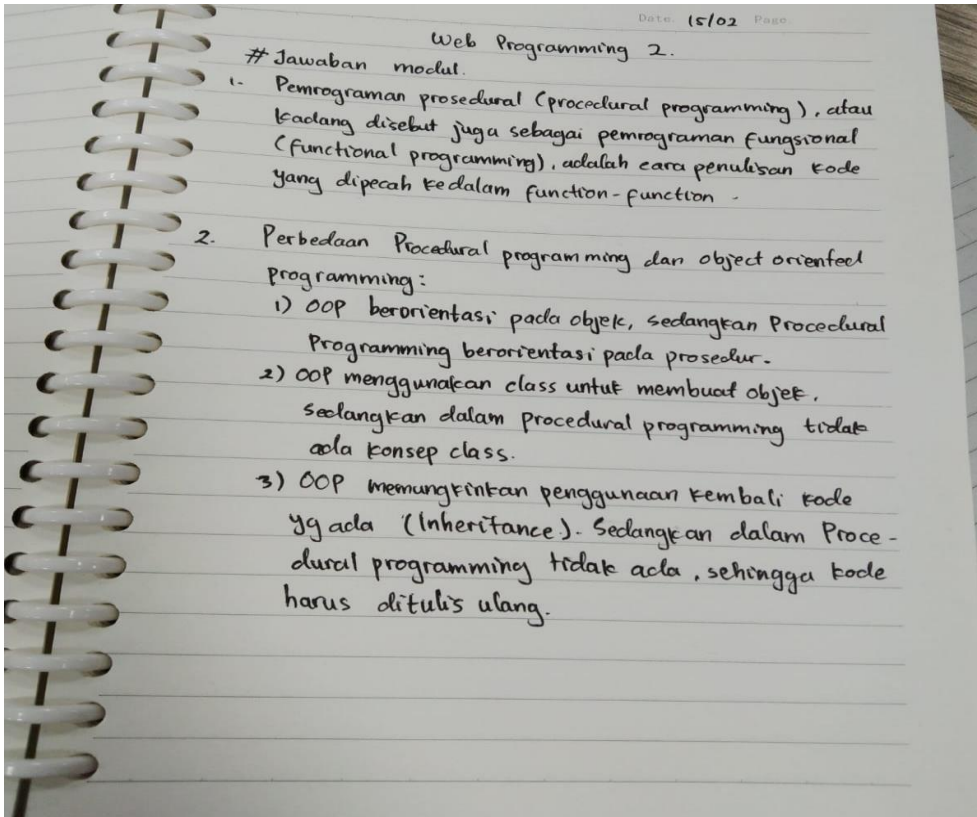 Date. 15/02 Page
Web Programming 2.
# Jawaban modul.
1- Pemrograman prosedural (procedural programming), atau
kadang disebut juga sebagai pemrograman fungsional
(functional programming), adalah cara penulisan kode
yang dipecah kedalam function-function -
2. Perbedaan Procedural programming dan object oriented
programming:
1) OOP berorientasi pada objek, sedangkan Procedural
Programming berorientasi pada prosedur.
2) OOP menggunakan class untuk membuat objek,
sedangkan dalam procedural programming tidak
ada konsep class.
3) OOP memungkinkan penggunaan kembali kode
yg ada (Inheritance). Sedangkan dalam Proce-
dural programming tidak ada, sehingga kode
harus ditulis ulang.